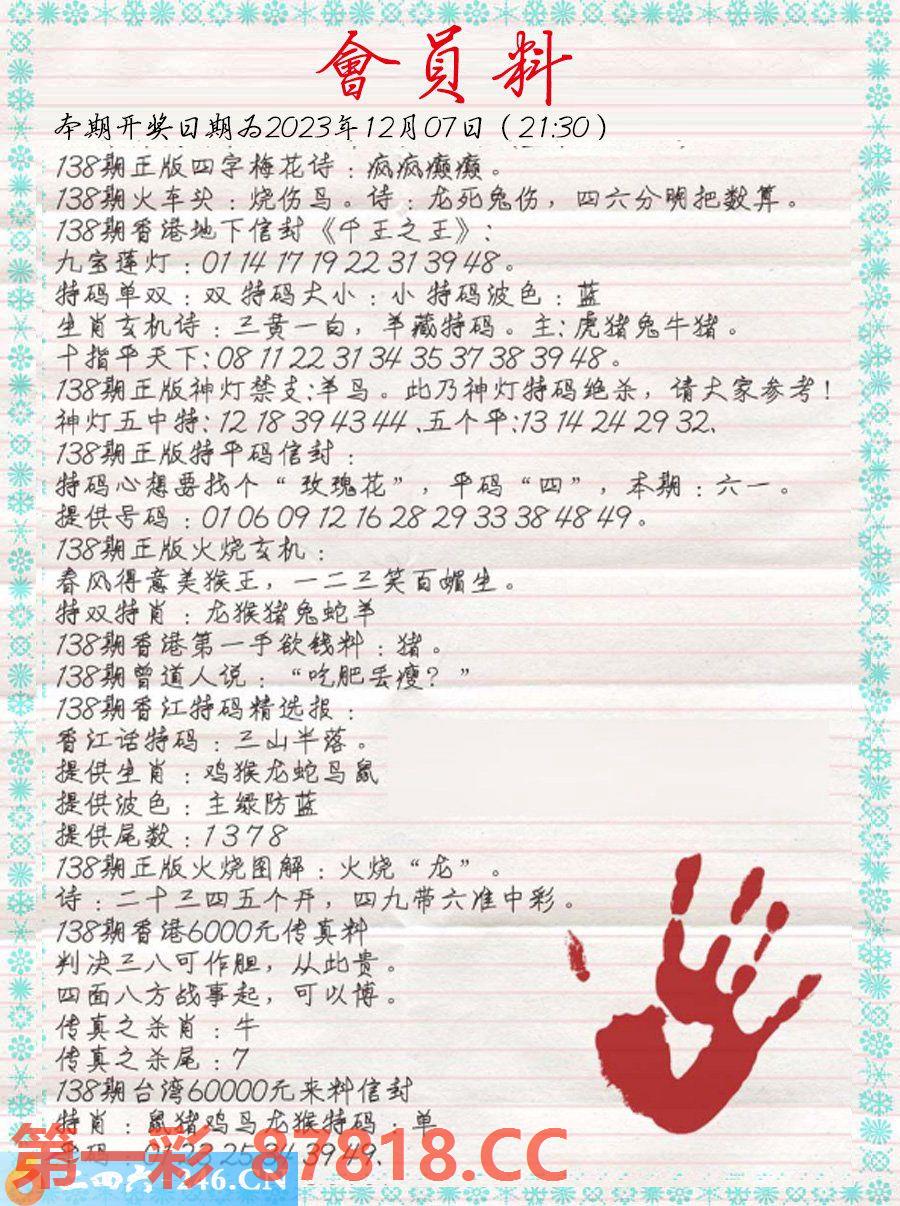 會員料
本期开奖日期为2023年12月07日（21:30）
138期正版四字梅花诗：疯疯癫癫。
138期火车头：烧伤鸟。诗：龙死兔伤，四六分明把数算。
138期香港地下信封《千王之王》：
九宝莲灯：01 14 17 19 22 31 39 48。
特码单双：双 特码大小：小 特码波色：蓝
生肖玄机诗：三黄一白，羊藏特码。主：虎猪兔牛猪。
十指平天下：08 11 22 31 34 35 37 38 39 48。
138期正版神灯禁支：羊鸟。此乃神灯特码绝杀，请大家参考！
神灯五中特：12 18 39 43 44、五个平：13 14 24 29 32、
138期正版特平码信封：
特码心想要找个“玫瑰花”，平码“四”，本期：六一。
提供号码：01 06 09 12 16 28 29 33 38 48 49。
138期正版火烧玄机：
春风得意美猴王，一二三笑百媚生。
特双特肖：龙猴猪兔蛇羊
138期香港第一手欲钱料：猪。
138期曾道人说：“吃肥丢瘦？”
138期香江特码精选报：
香江话特码：三山半落。
提供生肖：鸡猴龙蛇马鼠
提供波色：主绿防蓝
提供尾数：1 3 7 8
138期正版火烧图解：火烧“龙”。
诗：二十三四五个开，四九带六准中彩。
138期香港6000元传真料
判决三八可作胆，从此贵。
四面八方战事起，可以博。
传真之杀肖：牛
传真之杀尾：7
138期台湾60000元来料信封
特肖：鼠猪鸡马龙猴特码：单
25 34 39 49、
第一彩 87818.CC
二四六 246.CN